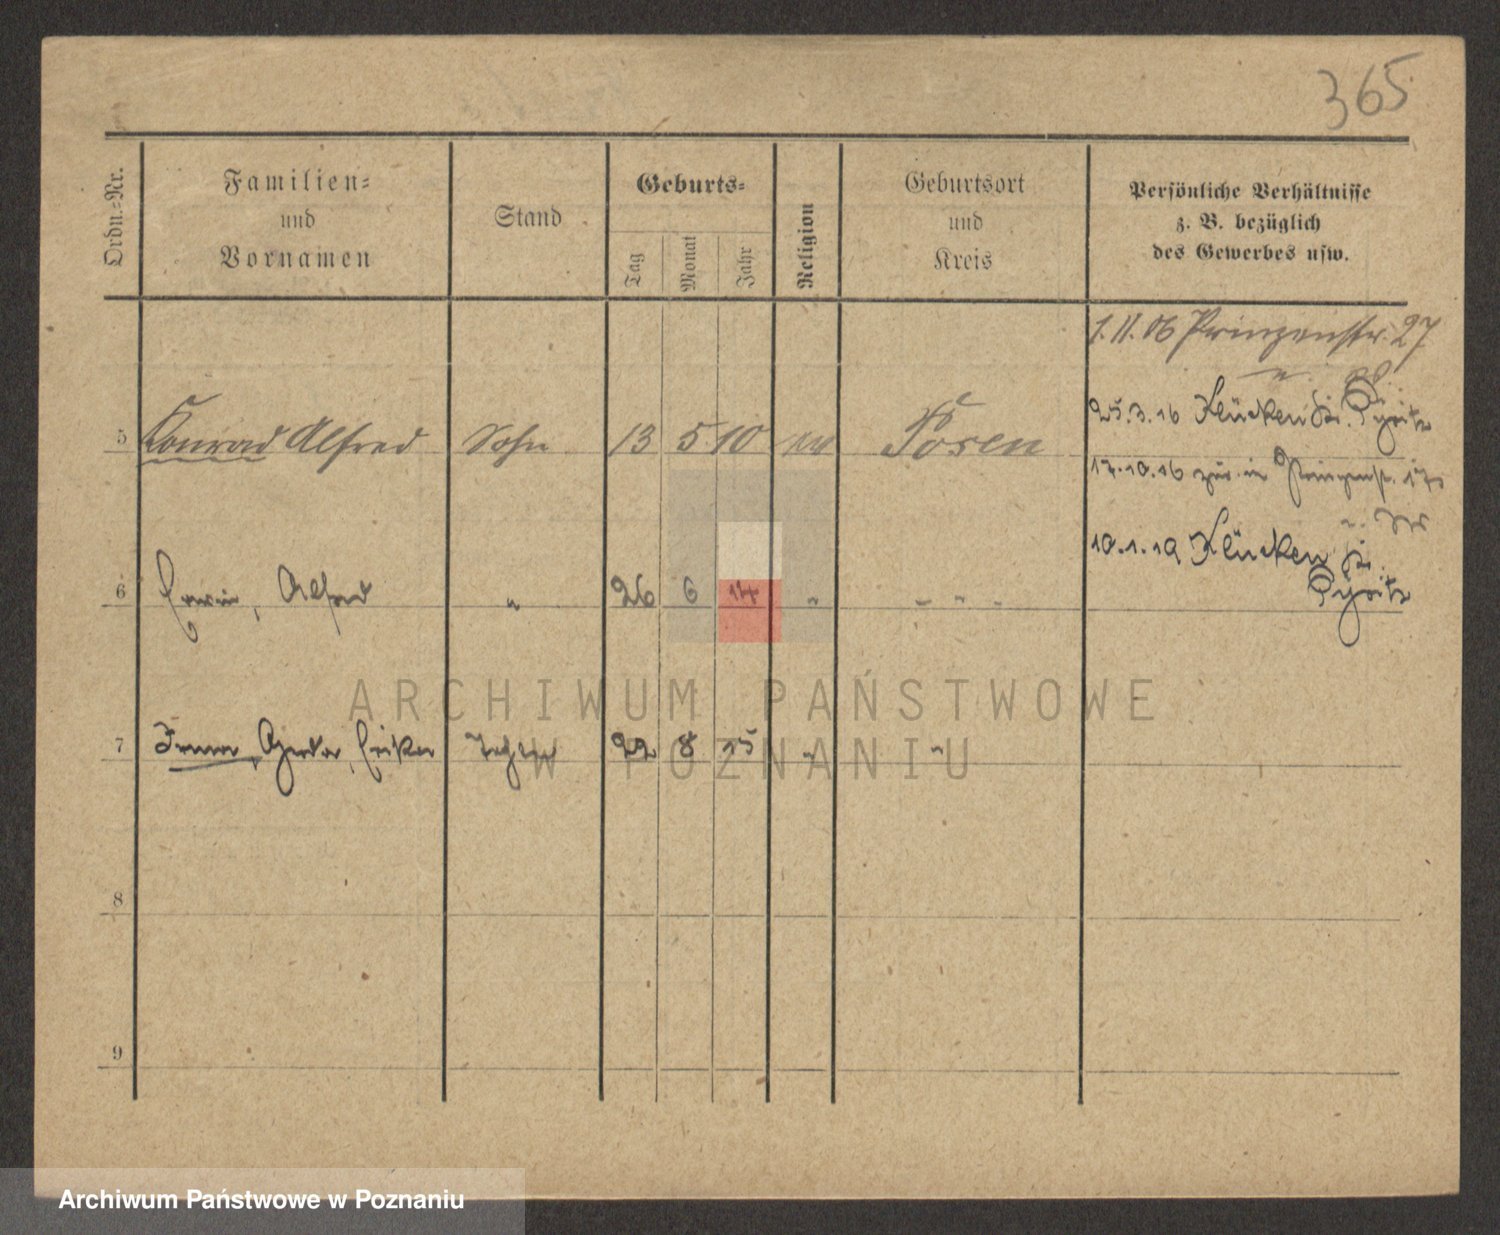 365
Ordn.-Nr.
Familien-
und
Vornamen
Stand
Geburts-
Tag
Monat
Jahr
Religion
Geburtsort
und
Kreis
Persönliche Verhältnisse
z. B. bezüglich
des Gewerbes usw.
1.11.06 Prinzenstr. 27
5 Konrad Alfred Sohn 13 5 10 ev Posen
25.3.16 Klücken Kr. Pyritz
17.10.16 zur. in Prinzenstr. 17
6 Erwin, Alfred " 26 6 14 " " 
10.1.19 Klücken Kr.
Pyritz
7 Irma, Gerda, Erika Tochter 22 8 15 " "
8
9
ARCHIWUM PAŃSTWOWE
W POZNANIU
Archiwum Państwowe w Poznaniu